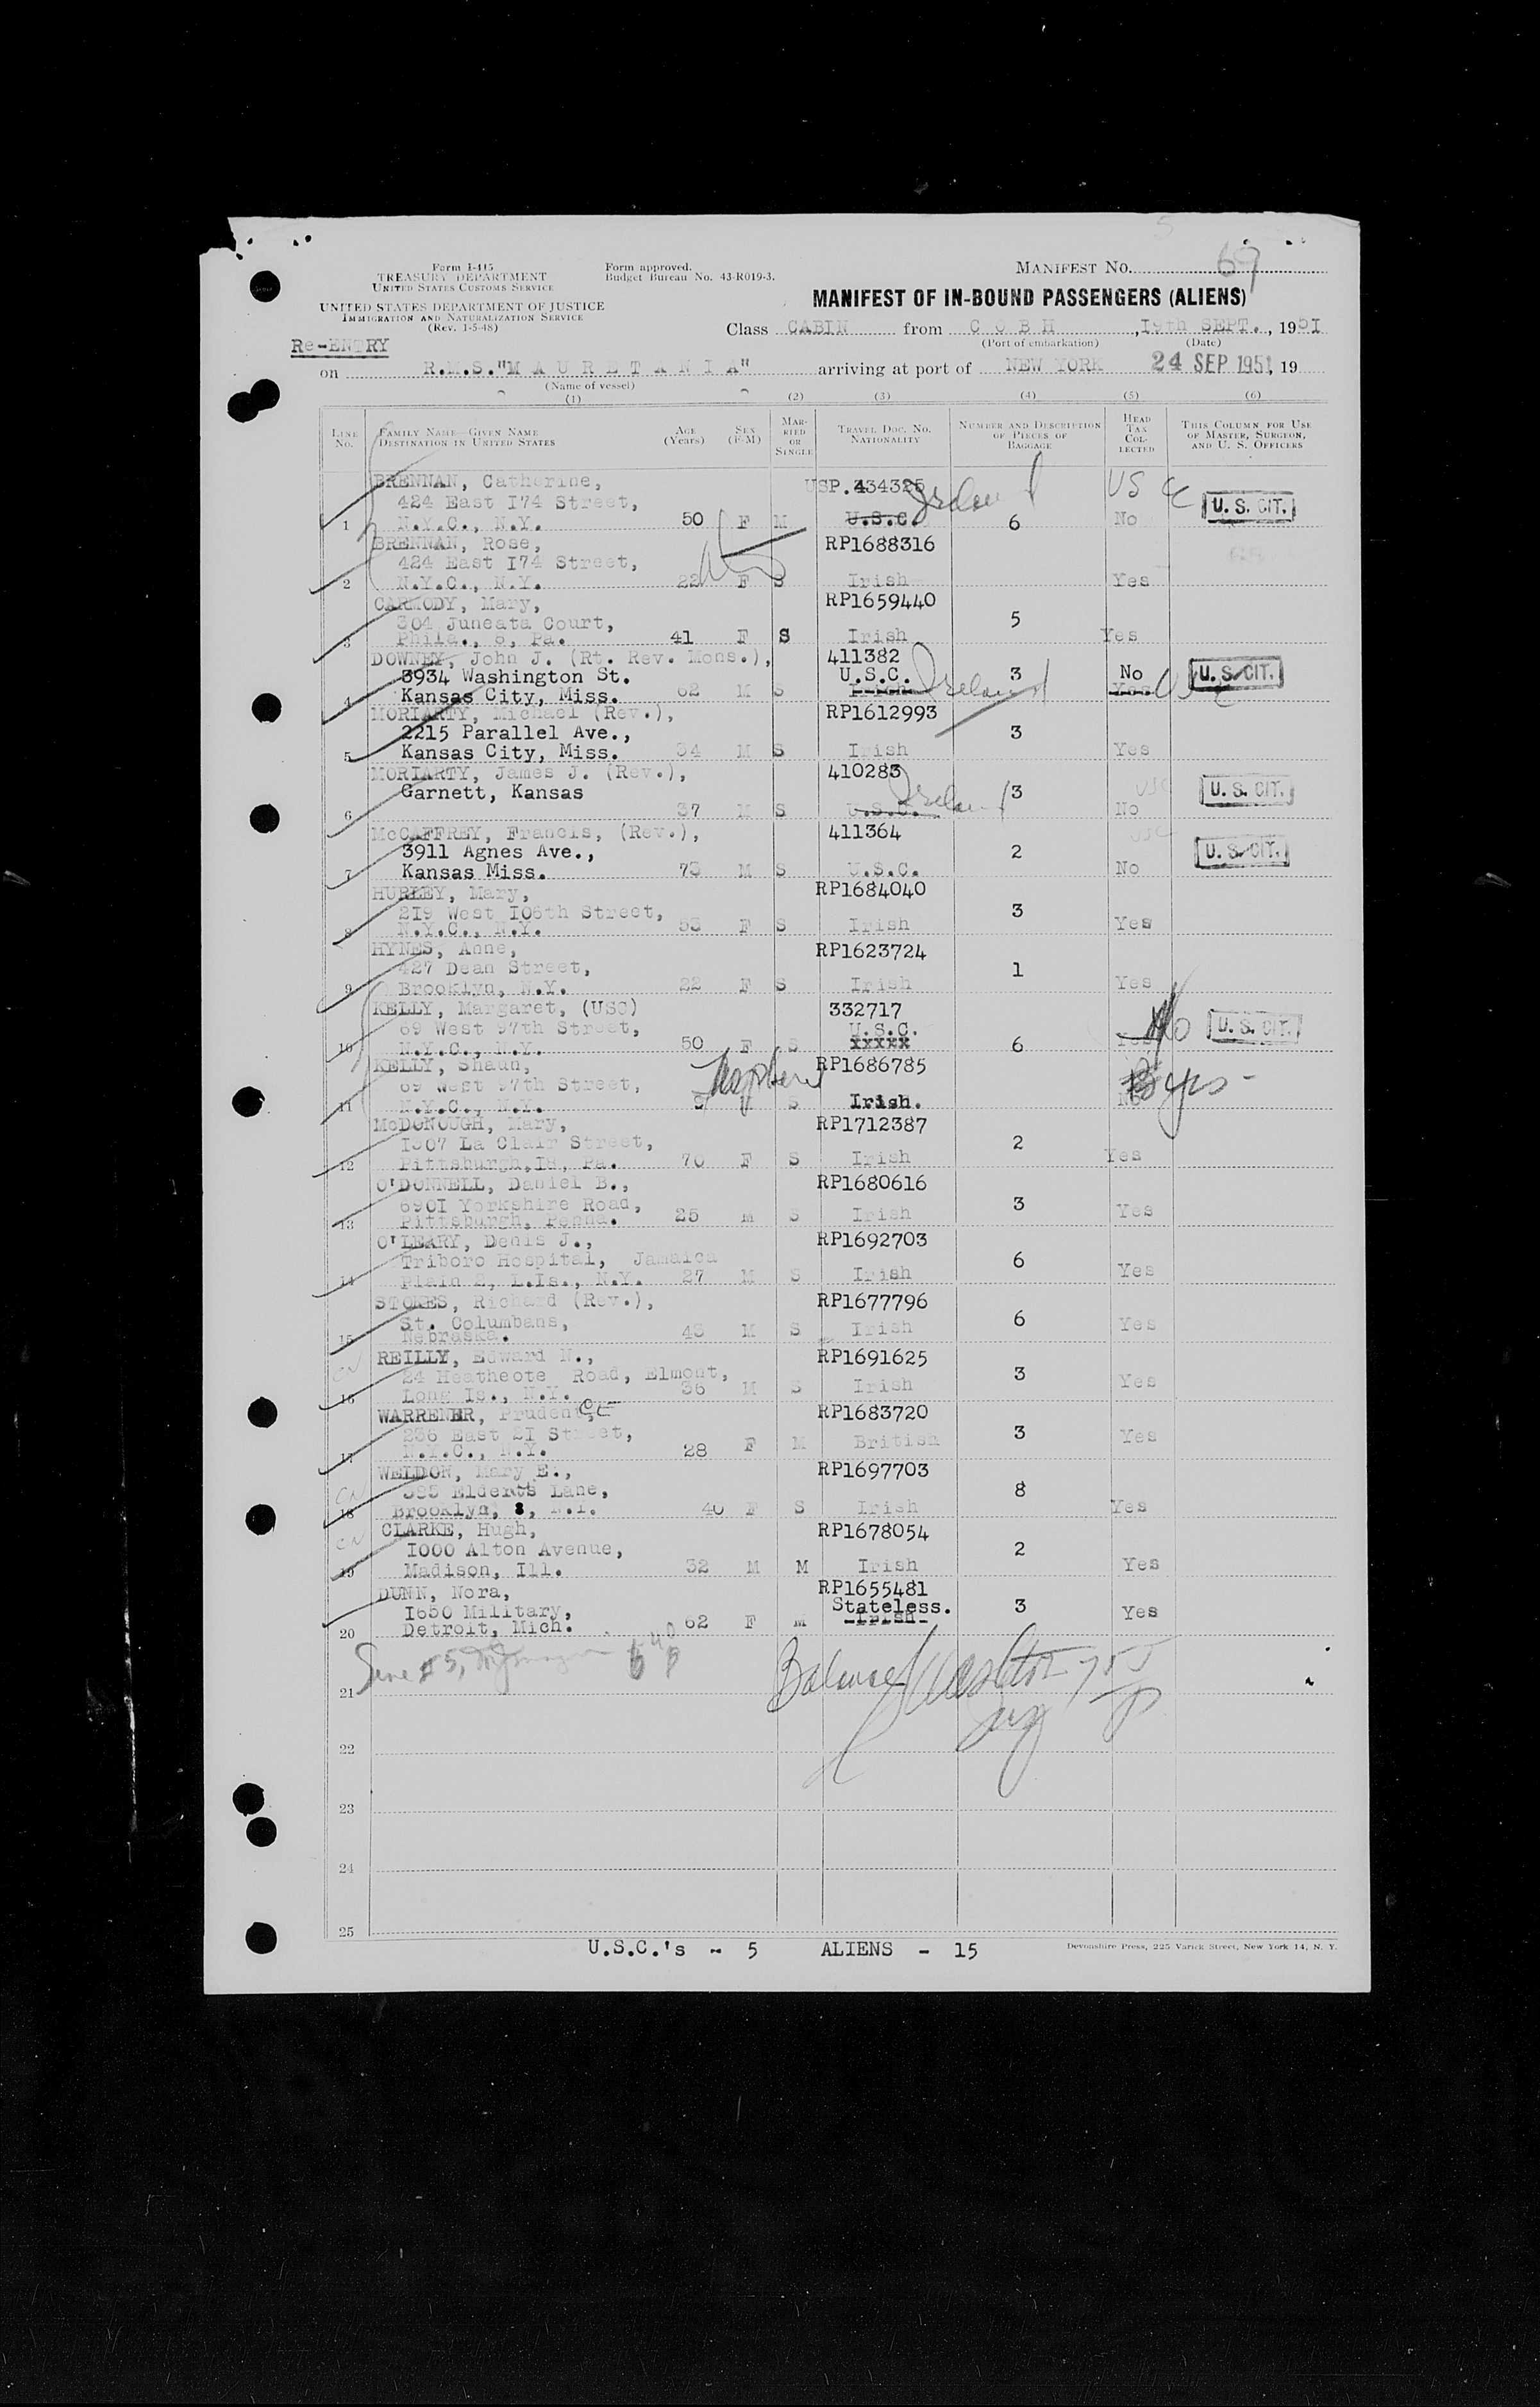 Form I-415
TREASURY DEPARTMENT
UNITED STATES CUSTOMS SERVICE
Form approved.
Budget Bureau No. 43-R019-3.
MANIFEST No. 69
UNITED STATES DEPARTMENT OF JUSTICE
IMMIGRATION AND NATURALIZATION SERVICE
(Rev. 1-5-48)
MANIFEST OF IN-BOUND PASSENGERS (ALIENS)
Class CABIN from C O B H, 19th SEPT., 1951
(Port of embarkation) (Date)
Re-ENTRY
on R.M.S."M A U R E T A N I A" arriving at port of NEW YORK 24 SEP 1951, 19
(Name of vessel)
(1) (2) (3) (4) (5) (6)
LINE No. FAMILY NAME—GIVEN NAME DESTINATION IN UNITED STATES AGE (Years) SEX (F-M) MARRIED OR SINGLE TRAVEL DOC. NO. NATIONALITY NUMBER AND DESCRIPTION OF PIECES OF BAGGAGE HEAD TAX COLLECTED THIS COLUMN FOR USE OF MASTER, SURGEON, AND U. S. OFFICERS
BRENNAN, Catherine, USP.434325 Ireland US C
424 East I74 Street, U. S. CIT.
1 N.Y.C., N.Y. 50 F M U.S.C. 6 No
BRENNAN, Rose, RP1688316
424 East I74 Street,
2 N.Y.C., N.Y. 22 F S Irish Yes
CARMODY, Mary, RP1659440
304 Juneata Court, 5
3 Phila., 8, Pa. 41 F S Irish Yes
DOWNEY, John J. (Rt. Rev. Mons.), 411382
3934 Washington St. U.S.C. 3 No U. S. CIT.
4 Kansas City, Miss. 62 M S Irish Ireland Yes USC
MORIARTY, Michael (Rev.), RP1612993
2215 Parallel Ave., 3
5 Kansas City, Miss. 34 M S Irish Yes
MORIARTY, James J. (Rev.), 410283
Garnett, Kansas Ireland 3 USC U. S. CIT.
6 37 M S U.S.C. No
McCAFFREY, Francis, (Rev.), 411364 USC
3911 Agnes Ave., 2 U. S. CIT.
7 Kansas Miss. 73 M S U.S.C. No
HURLEY, Mary, RP1684040
219 West 106th Street, 3
8 N.Y.C., N.Y. 53 F S Irish Yes
HYNES, Anne, RP1623724
427 Dean Street, 1
9 Brooklyn, N.Y. 22 F S Irish Yes
KELLY, Margaret, (USC) 332717
69 West 97th Street, U.S.C. No U. S. CIT.
10 N.Y.C., N.Y. 50 F S xxxxx 6 Yes
KELLY, Shaun, Nephew RP1686785
69 West 97th Street, yes -
11 N.Y.C., N.Y. 9 S Irish. No
McDONOUGH, Mary, RP1712387
1307 La Clair Street, 2
12 Pittsburgh,I8, Pa. 70 F S Irish Yes
O'DONNELL, Daniel B., RP1680616
690I Yorkshire Road, 3
13 Pittsburgh, Penna. 25 m S Irish Yes
O'LEARY, Denis J., RP1692703
Triboro Hospital, Jamaica 6
14 Plain 2, L.Is., N.Y. 27 M S Irish Yes
STOKES, Richard (Rev.), RP1677796
St. Columbans, 6
15 Nebraska. 43 M S Irish Yes
CN REILLY, Edward N., RP1691625
24 Heatheote Road, Elmont, 3
16 Long Is., N.Y. 36 M S Irish Yes
WARRENER, Prudence RP1683720
236 East 2I Street, 3
17 N.Y.C., N.Y. 28 F M British Yes
WELDON, Mary E., RP1697703
CN 385 Elderts Lane, 8
18 Brooklyn, 8, N.Y. 40 F S Irish Yes
CN CLARKE, Hugh, RP1678054
I000 Alton Avenue, 2
19 Madison, Ill. 32 M M Irish Yes
DUNN, Nora, RP1655481
I650 Military, Stateless. 3 Yes
20 Detroit, Mich. 62 F M Irish
Line # 5,
21 Balance
22
23
24
25
U.S.C.'s - 5 ALIENS - 15
Devonshire Press, 225 Varick Street, New York 14, N. Y.